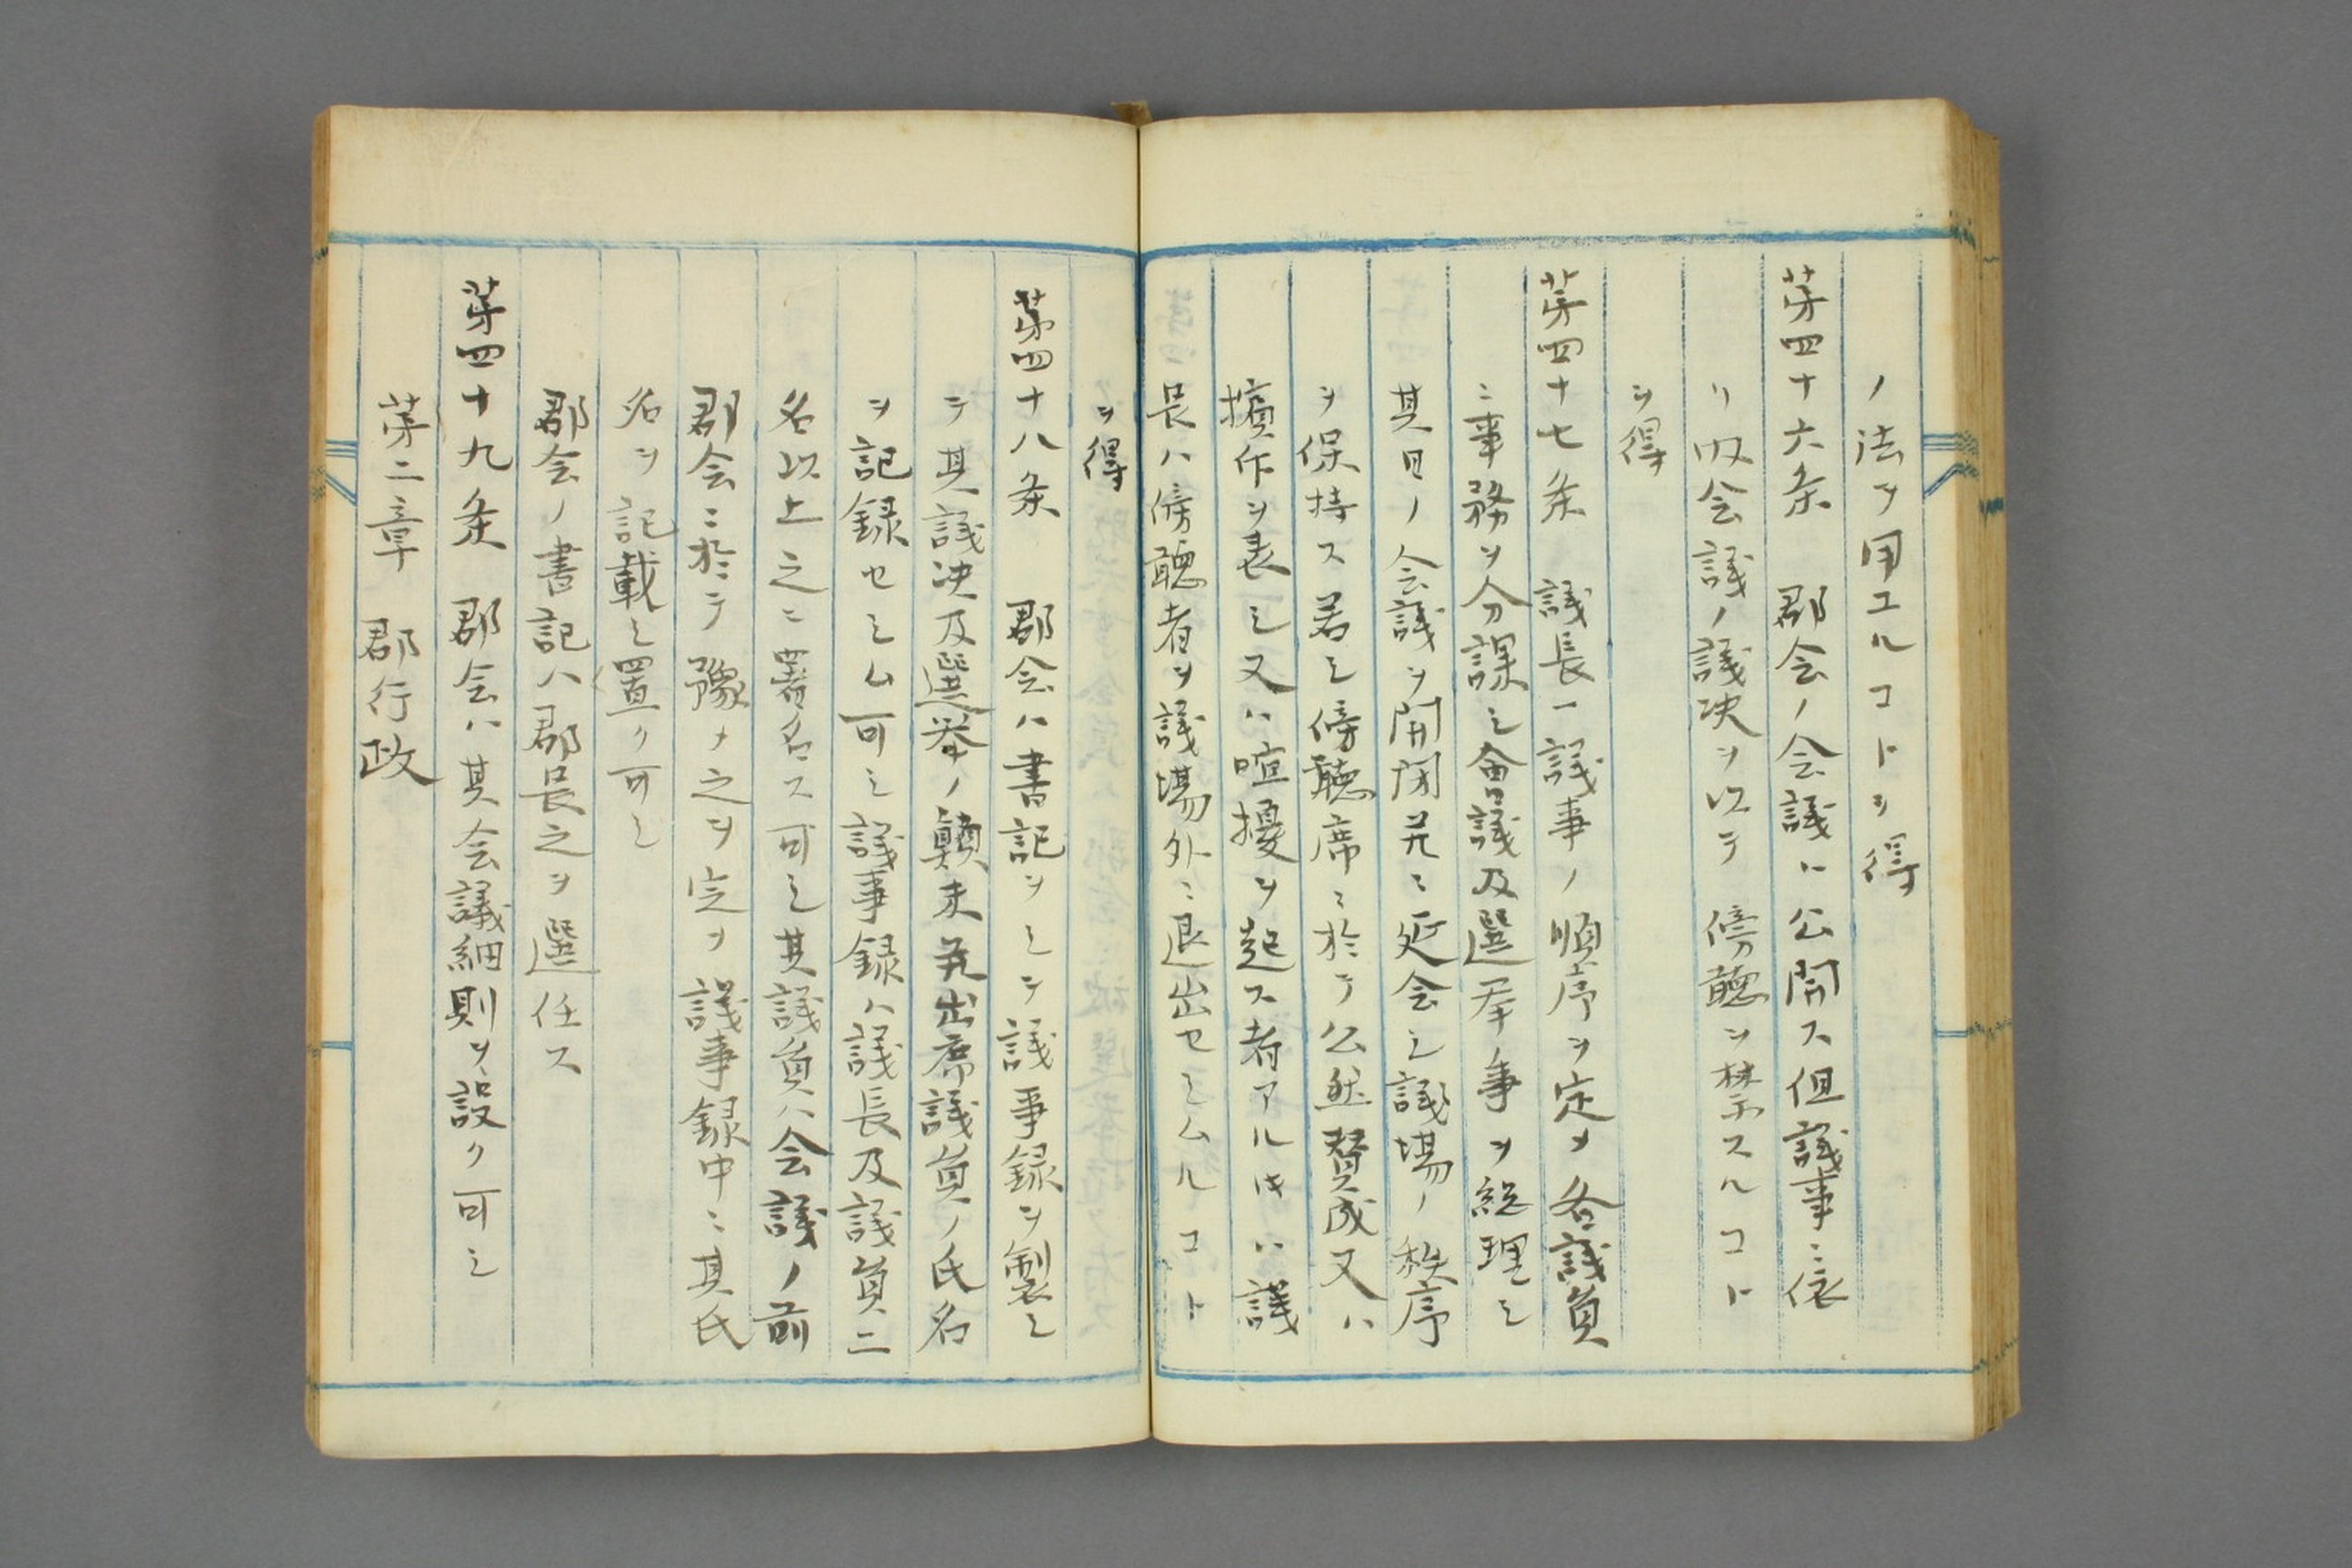 ノ法ヲ用ユルコトヲ得
第四十六条　郡会ノ会議ハ公開ス但議事ニ依
リ仮会議ノ議決ヲ以テ傍聴ヲ禁スルコト
ヲ得
第四十七条　議長ハ議事ノ順序ヲ定メ各議員
ニ事務ヲ分課シ会議及選挙ノ事ヲ総理シ
其日ノ会議ヲ開閉并ニ延会シ議場ノ秩序
ヲ保持ス若シ傍聴席ニ於テ公然賛成又ハ
擯斥ヲ表シ又ハ喧擾ヲ起ス者アル时ハ議
長ハ傍聴者ヲ議場外ニ退出セシムルコト
ヲ得
第四十八条　郡会ハ書記ヲシテ議事録ヲ製シ
テ其議決及選挙ノ顛末并出席議員ノ氏名
ヲ記録セシム可シ議事録ハ議長及議員二
名以上之ニ署名ス可シ其議員ハ会議ノ前
郡会ニ於テ豫メ之ヲ定メ議事録中ニ其氏
名ヲ記載シ置ク可シ
郡会ノ書記ハ郡長之ヲ選任ス
第四十九条　郡会ハ其会議細則ヲ設ク可シ
第二章　郡行政